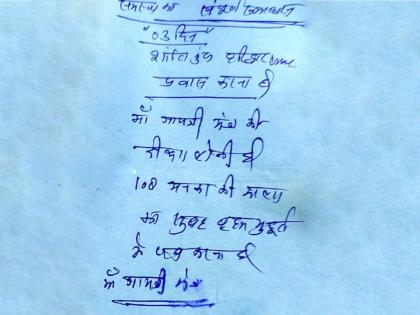 समस्या का संपूर्ण समाधान
"03 दिन"
शांति कुंज हरिद्वार
प्रवास करना है
माँ गायत्री मंत्र की
दीक्षा लेनी है
108 मनका की माला
का सुबह ब्रह्म मुहूर्त
मे जाप करना है
माँ गायत्री मंत्र